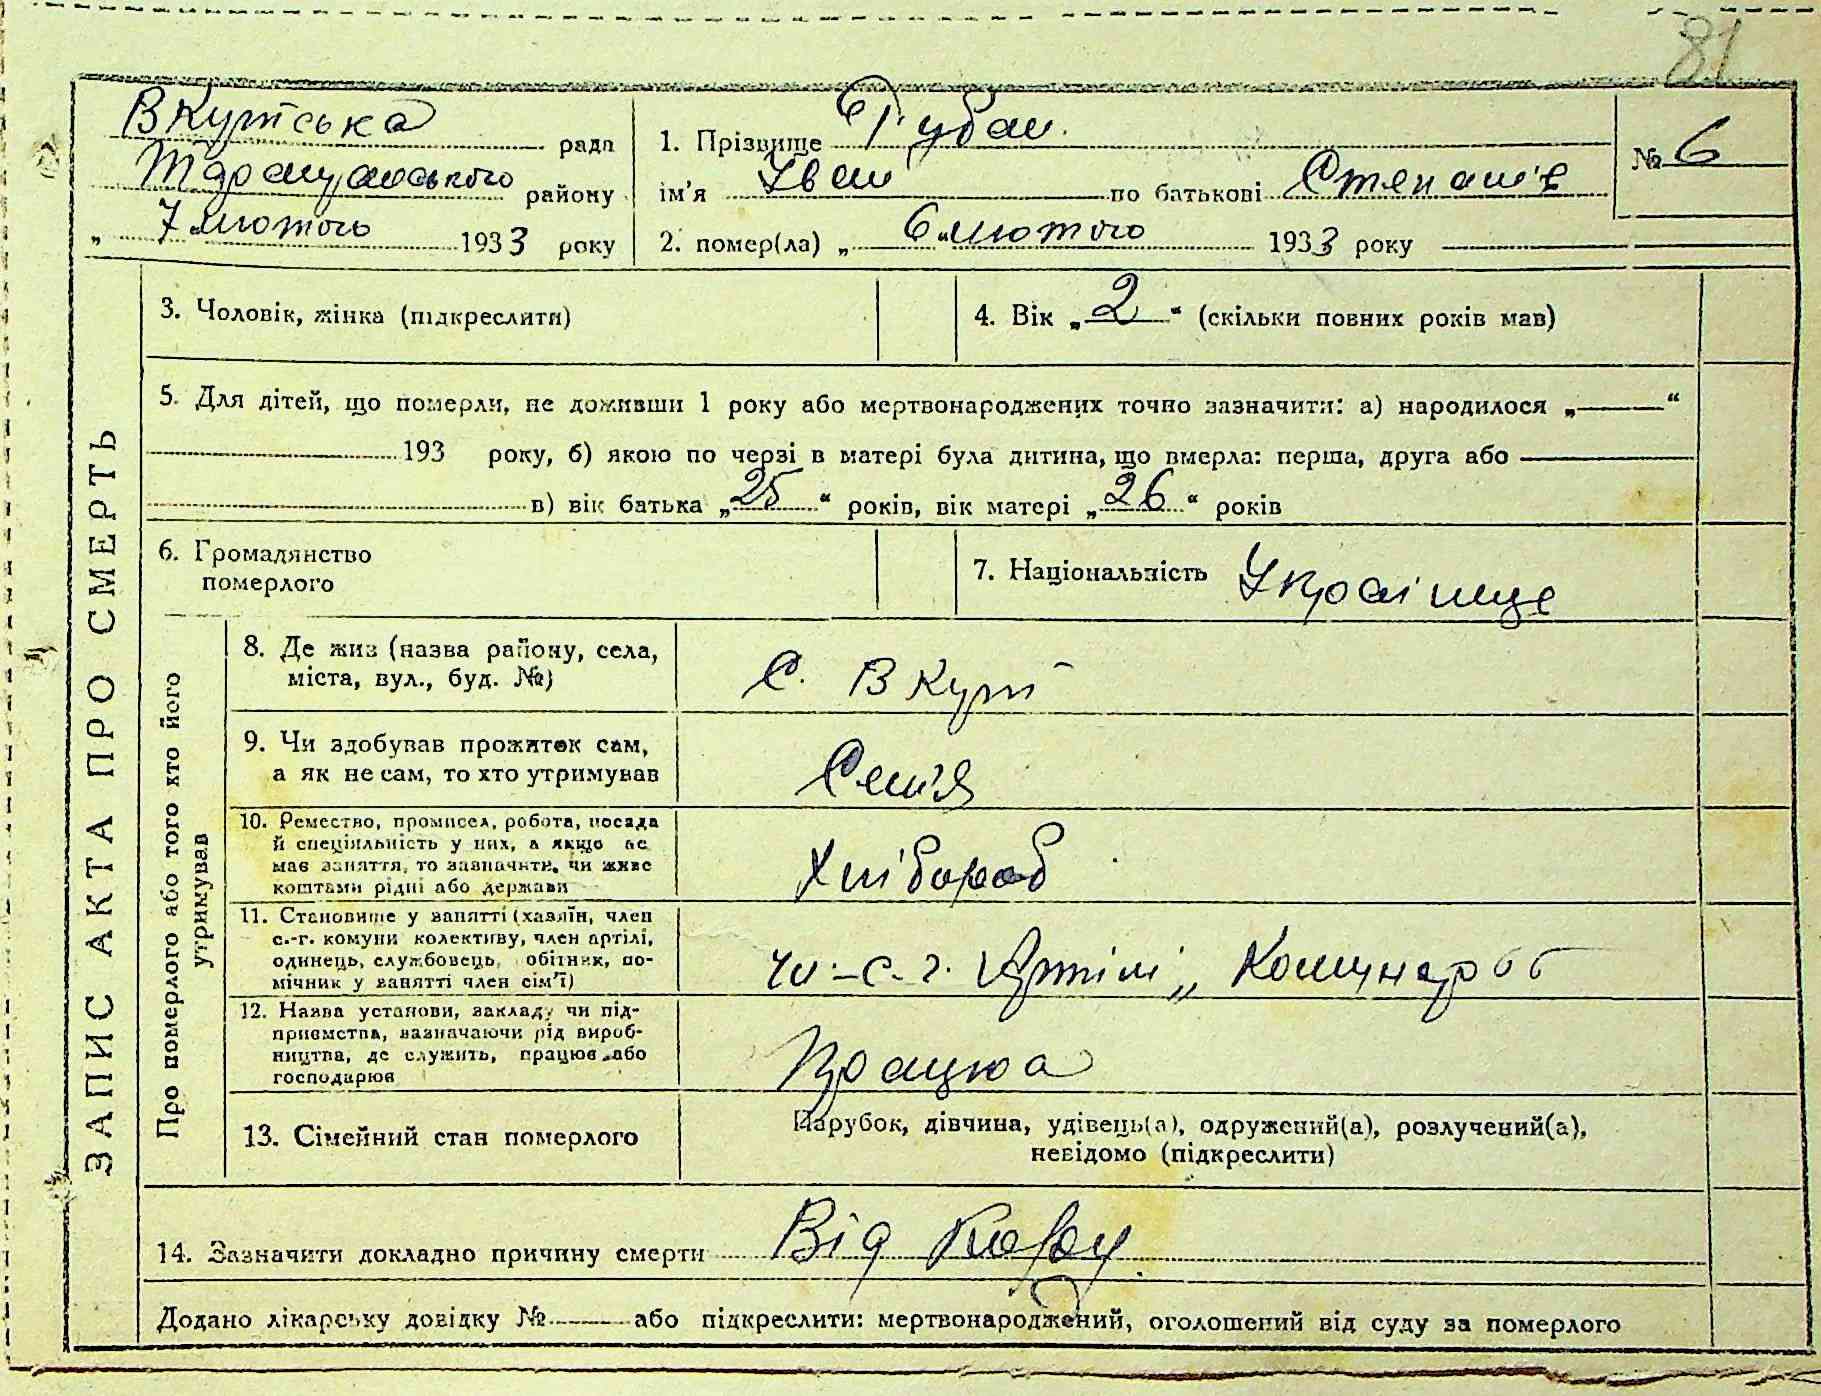 81
ВКутська рада
Таращанського району
„ 7 " лютого 1933 року
1. Прізвище
ім'я Іван по батькові Степанів
2. помер(ла) „ 6 " лютого 1933 року
№ 6
ЗАПИС АКТА ПРО СМЕРТЬ
3. Чоловік, жінка (підкреслити)
4. Вік „ 2 “ (скільки повних років мав)
5. Для дітей, що померли, не доживши 1 року або мертвонароджених точно зазначити: а) народилося „——“
193 року, б) якою по черзі в матері була дитина, що вмерла: перша, друга або ——
в) вік батька „ 25 “ років, вік матері „ 26 “ років
6. Громадянство
померлого
7. Національність Українце
Про померлого або того кто його
утримував
8. Де жив (назва району, села,
міста, вул., буд. №)
с. ВКут
9. Чи здобував прожиток сам,
а як не сам, то хто утримував
Сем'я
10. Ремество, промисел, робота, посада
й спеціяльність у них, а якщо не
має заняття, то зазначити, чи живе
коштами рідні або держави
Хлібороб
11. Становище у занятті (хазяїн, член
с.-г. комуни колективу, член артілі,
одинець, службовець, обітник, по-
мічник у занятті член сім'ї)
чл-с-г. Артілі „ Комунар
12. Назва установи, закладу чи під-
приємства, зазначаючи рід вироб-
ництва, де служить, працює або
господарює
Працюа
13. Сімейний стан померлого
Парубок, дівчина, удівець(а), одружений(а), розлучений(а),
невідомо (підкреслити)
14. Зазначити докладно причину смерти Від Кору
Додано лікарську довідку №——або підкреслити: мертвонароджений, оголошений від суду за померлого